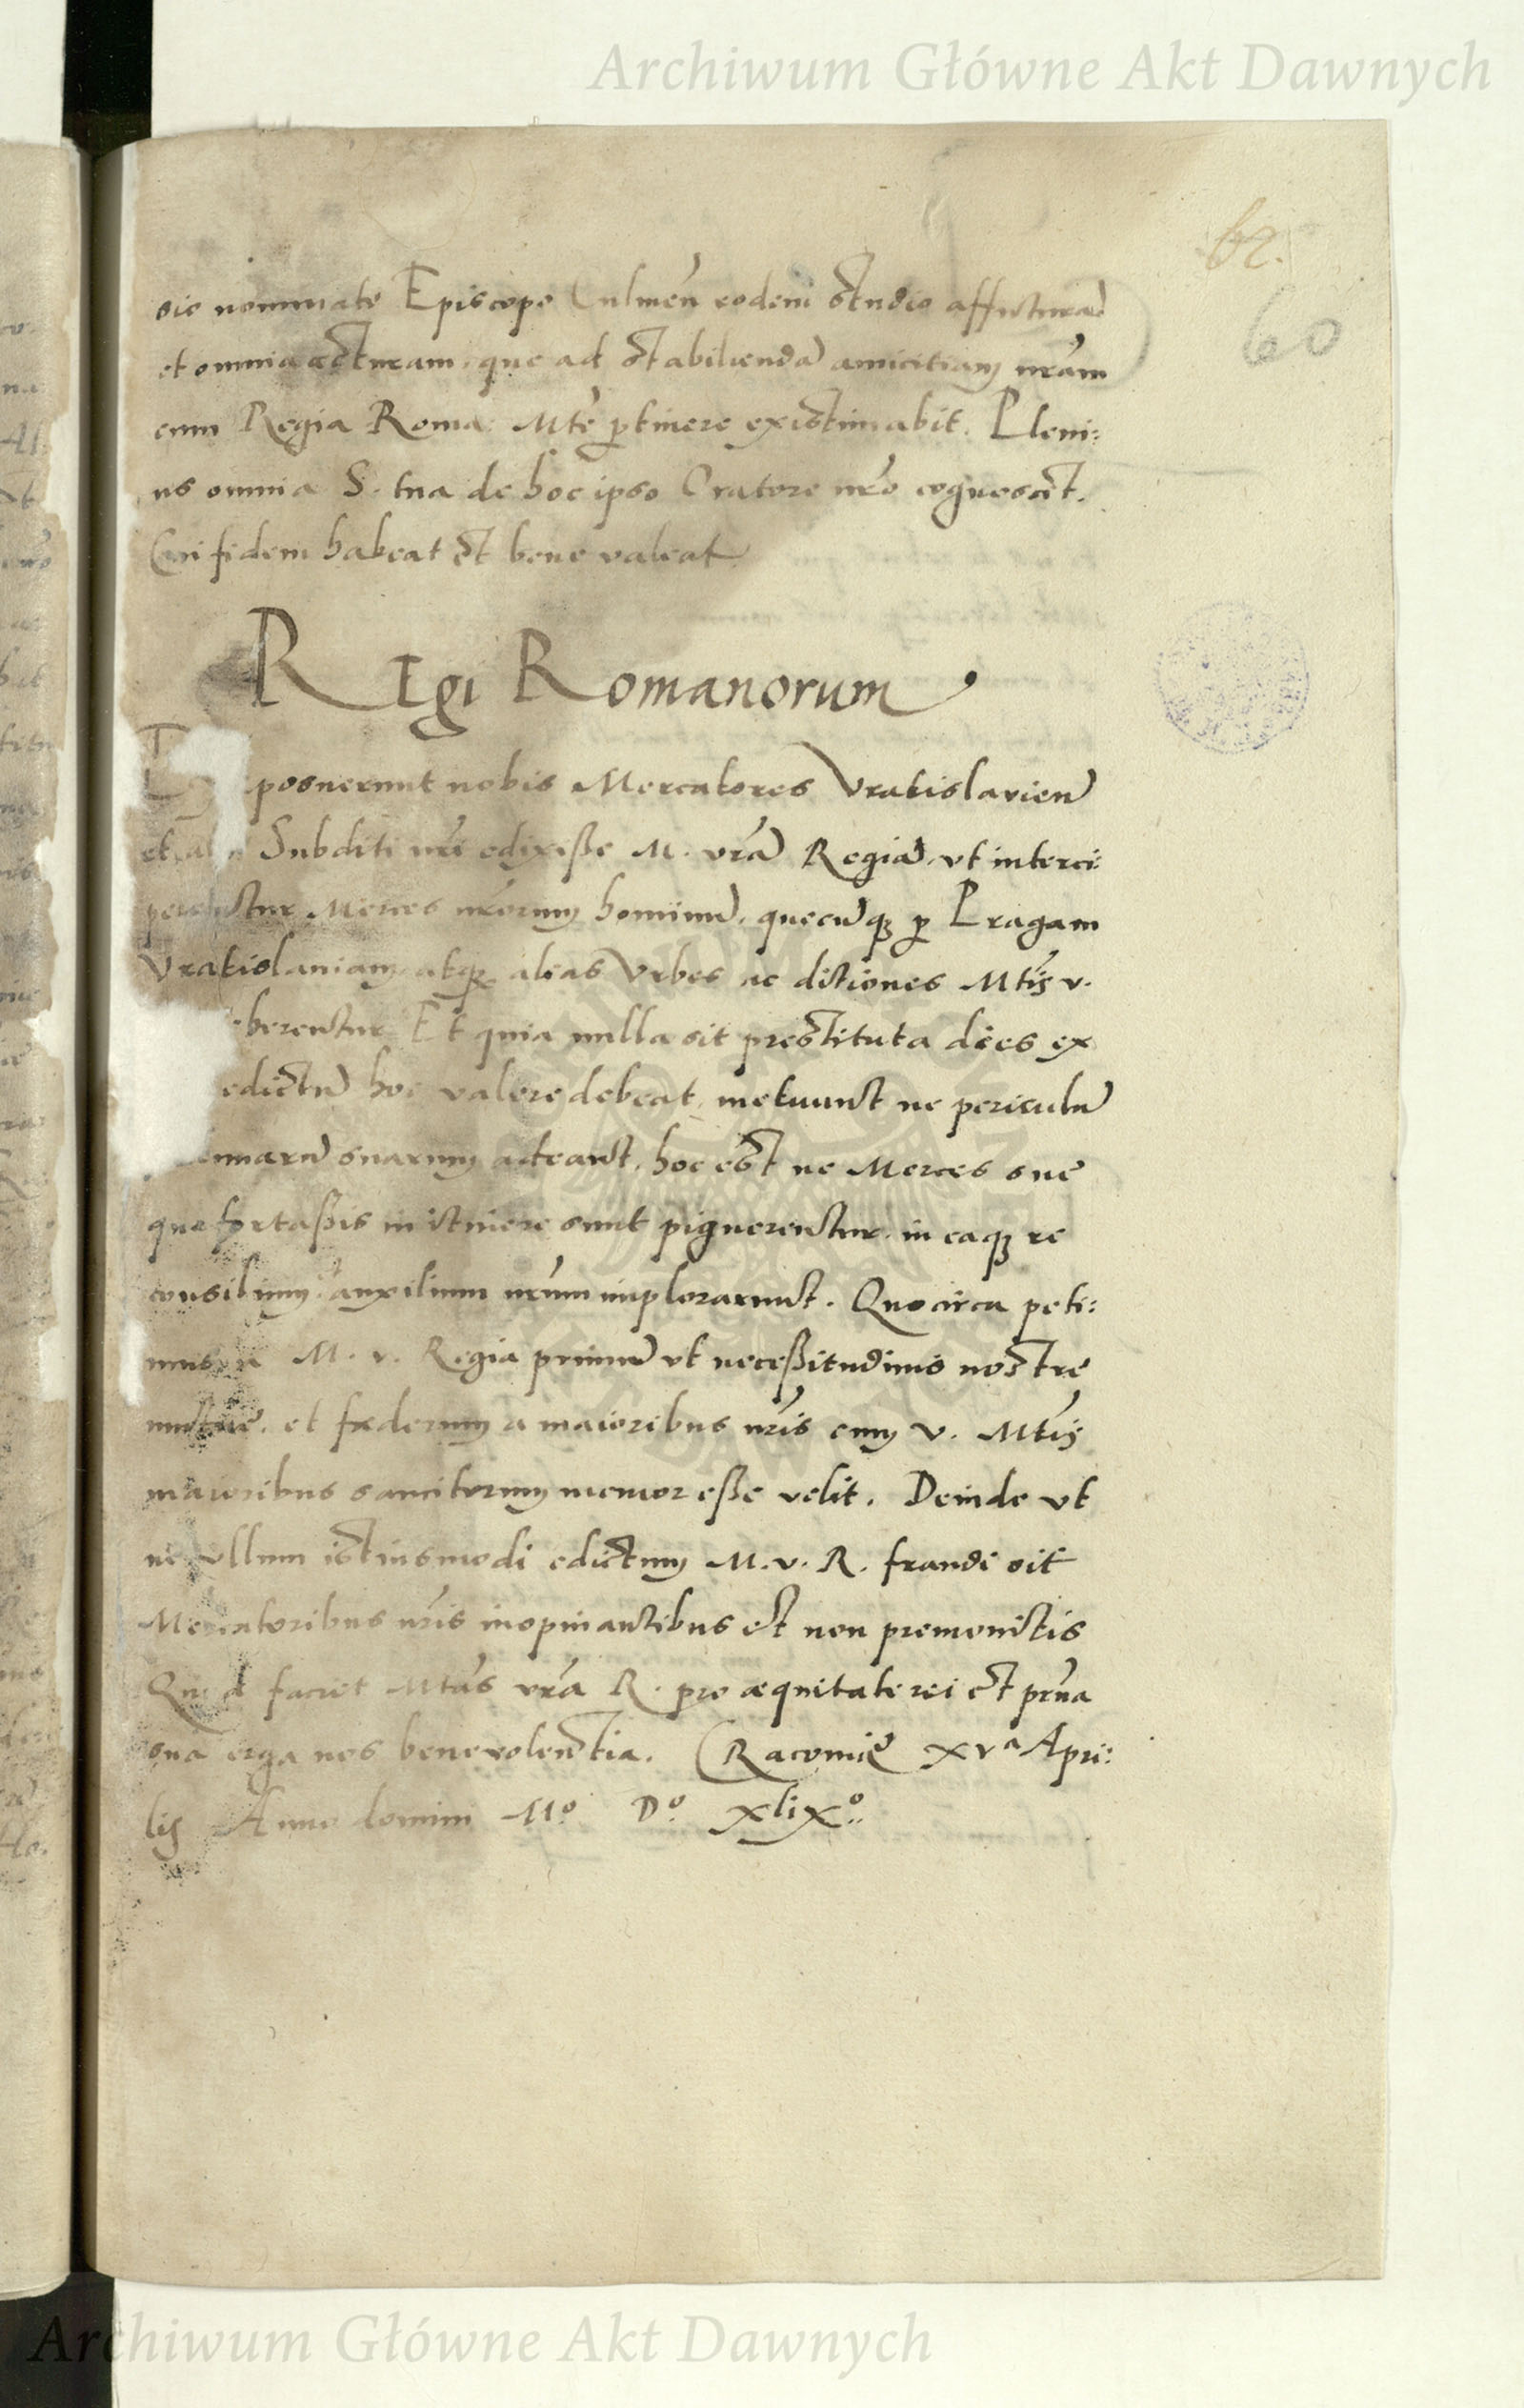 Archiwum Główne Akt Dawnych
62.
60
sis nominato Episcopo Culmeñ eodem studio affuturã
et omnia acturam, que ad stabiliendã amicitiam nrãm
cum Regia Roma: Mte ptinere existimabit. Pleni:
us omnia S. tua de hoc ipso Oratore nrõ cognoscet.
Cui fidem habeat et bene valeat
REgi Romanorum
posuerunt nobis Mercatores Vratislavieñ
et Subditi nri edixisse M. vrãm Regiã, vt interci:
Merces nrorum hominũ, quecũq3 p Pragam
Vratislauiam, atq3 alias Vrbes ac ditiones Mtis v.
berentur Et quia nulla sit prestituta dies ex
edictũ hoc valere debeat, metuunt ne periculũ
suarum adeant, hoc est ne Merces suę
que fortassis in itinere sunt pignerentur, in eaq3 re
consilium, auxilium nrum implorarunt. Quocirca peti:
mus a M. v. Regia primũ vt necessitudinis nostrę
mutuę, et fœderum a maioribus nris cum v. Mtis
maioribus sancitorum memor esse velit. Deinde vt
ne vllum istiusmodi edictum M. v. R. fraudi sit
Mercatoribus nris inopinantibus et non premonitis
Quod faciet Mtas vra R. pro æquitate rei et prna
sua erga nos benevolentia. Cracouię xva Apri:
lis Anno domini Mo. Do. xlixo.
Archiwum Główne Akt Dawnych